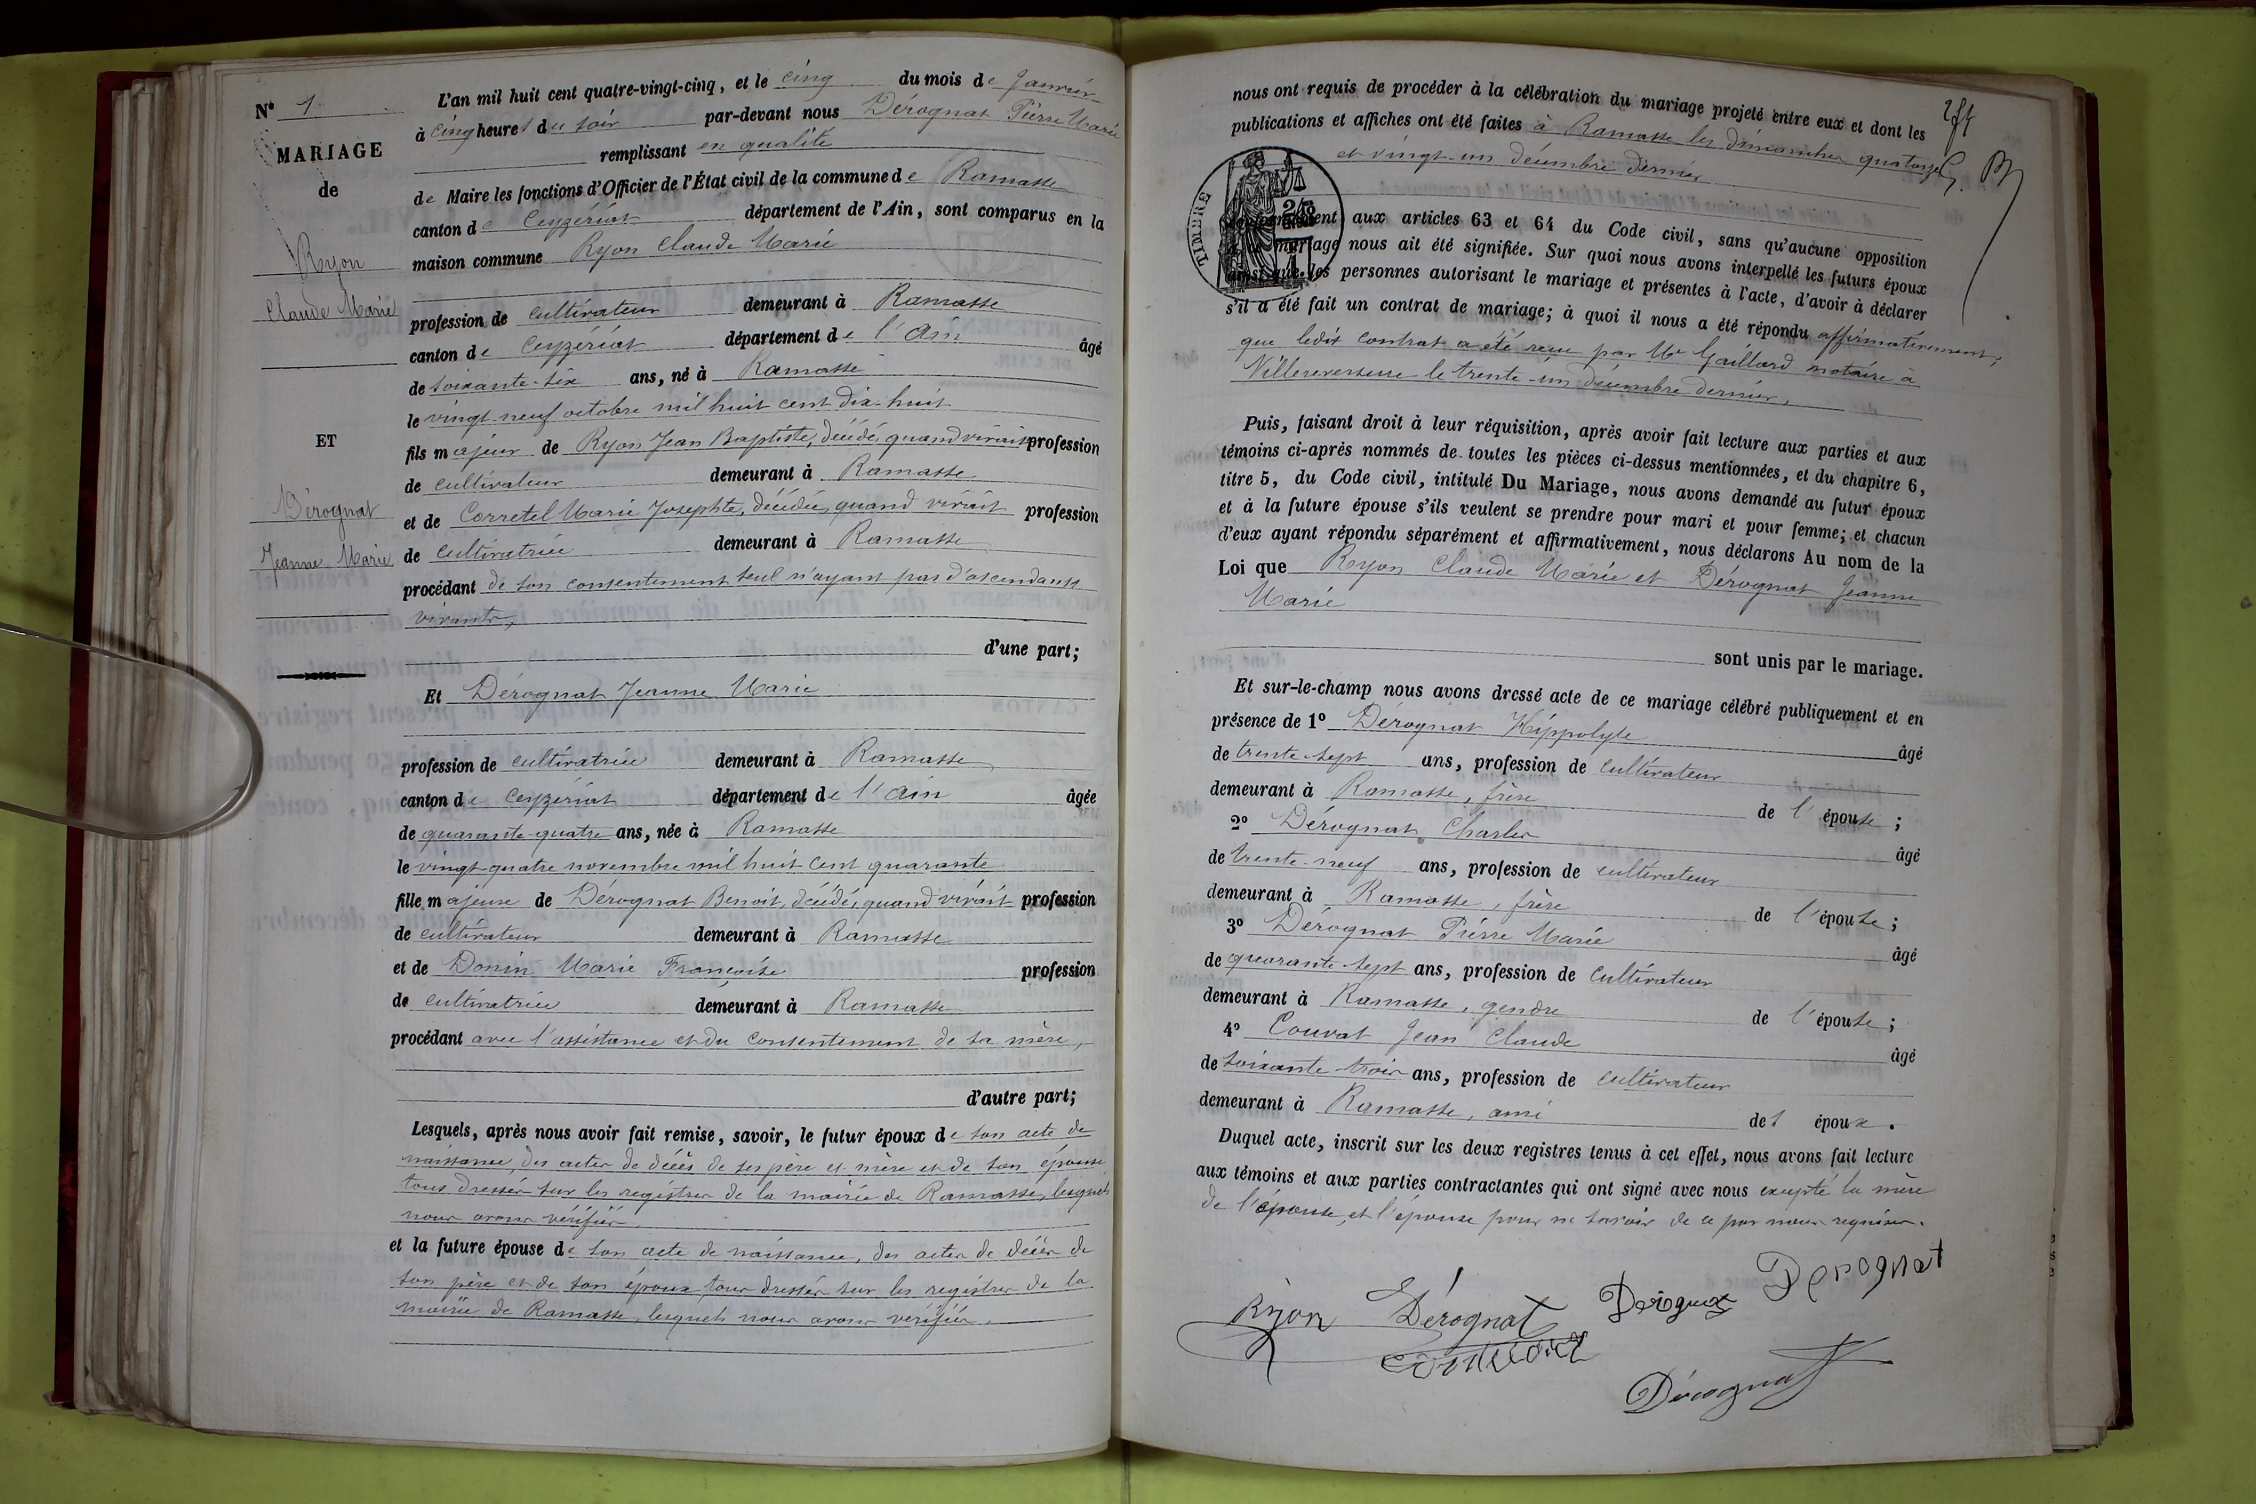 N° 1
MARIAGE
de
Ryon
Claude Marie
ET
Dérognat
Jeanne Marie
L'an mil huit cent quatre-vingt-cinq, et le cinq du mois de Janvier
à cinq heures du soir par-devant nous Dérognat Pierre Marie
remplissant en qualité
de Maire les fonctions d'Officier de l'État civil de la commune de Ramasse
canton de Ceyzériat département de l'Ain, sont comparus en la
maison commune Ryon Claude Marie
profession de cultivateur demeurant à Ramasse
canton de Ceyzériat département de l'Ain âgé
de soixante-six ans, né à Ramasse
le vingt neuf octobre mil huit cent dix-huit
fils majeur de Ryon Jean Baptiste, décédé, quand vivait profession
de cultivateur demeurant à Ramasse
et de Corretel Marie Josephte, décédée, quand vivait profession
de cultivatrice demeurant à Ramasse
procédant de son consentement seul n'ayant pas d'ascendants
vivants,
d'une part;
Et Dérognat Jeanne Marie
profession de cultivatrice demeurant à Ramasse
canton de Ceyzériat département de l'Ain âgée
de quarante quatre ans, née à Ramasse
le vingt-quatre novembre mil huit cent quarante
fille majeure de Dérognat Benoit, décédé, quand vivait profession
de cultivateur demeurant à Ramasse
et de Donin Marie Françoise profession
de cultivatrice demeurant à Ramasse
procédant avec l'assistance et du consentement de sa mère,
d'autre part;
Lesquels, après nous avoir fait remise, savoir, le futur époux de son acte de
naissance, des actes de décès de ses père et mère et de son épouse
tous dressés sur les registres de la mairie de Ramasse, lesquels
nous avons vérifiés
et la future épouse de son acte de naissance, des actes de décès de
son père et de son époux tous dressés sur les registres de la
mairie de Ramasse, lesquels nous avons vérifiés.
nous ont requis de procéder à la célébration du mariage projeté entre eux et dont les
publications et affiches ont été faites à Ramasse les dimanches quatorze
et vingt-un décembre dernier
TIMBRE
aux articles 63 et 64 du Code civil, sans qu'aucune opposition
mariage nous ait été signifiée. Sur quoi nous avons interpellé les futurs époux
ainsi que les personnes autorisant le mariage et présentes à l'acte, d'avoir à déclarer
s'il a été fait un contrat de mariage; à quoi il nous a été répondu affirmativement,
que ledit contrat a été reçu par Me Gaillard notaire à
Villereversure le trente-un décembre dernier,
Puis, faisant droit à leur réquisition, après avoir fait lecture aux parties et aux
témoins ci-après nommés de toutes les pièces ci-dessus mentionnées, et du chapitre 6,
titre 5, du Code civil, intitulé Du Mariage, nous avons demandé au futur époux
et à la future épouse s'ils veulent se prendre pour mari et pour femme; et chacun
d'eux ayant répondu séparément et affirmativement, nous déclarons Au nom de la
Loi que Ryon Claude Marie et Dérognat Jeanne
Marie
sont unis par le mariage.
Et sur-le-champ nous avons dressé acte de ce mariage célébré publiquement et en
présence de 1° Dérognat Hippolyte âgé
de trente-sept ans, profession de cultivateur
demeurant à Ramasse, frère de l'épouse;
2° Dérognat Charles âgé
de trente-neuf ans, profession de cultivateur
demeurant à Ramasse, frère de l'épouse;
3° Dérognat Pierre Marie âgé
de quarante-sept ans, profession de cultivateur
demeurant à Ramasse, gendre de l'épouse;
4° Couvat Jean Claude âgé
de soixante trois ans, profession de cultivateur
demeurant à Ramasse, ami de l époux.
Duquel acte, inscrit sur les deux registres tenus à cet effet, nous avons fait lecture
aux témoins et aux parties contractantes qui ont signé avec nous excepté la mère
de l'épouse, et l'épouse pour ne savoir de ce par nous requises.
Ryon Dérognat Derognat Derognat
Dérognat